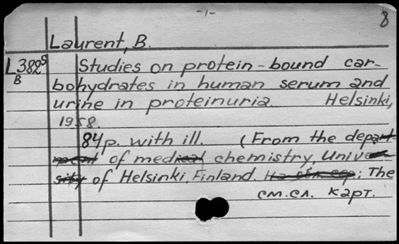 -1-
8
Laurent, B.
L382s
B
Studies on protein-bound car-
bohydrates in human serum and
urine in proteinuria. Helsinki,
1958.
84p. with ill. (From the depart-
ment of medical chemistry, Univer-
sity of Helsinki, Finland. ; The
см.сл. карт.